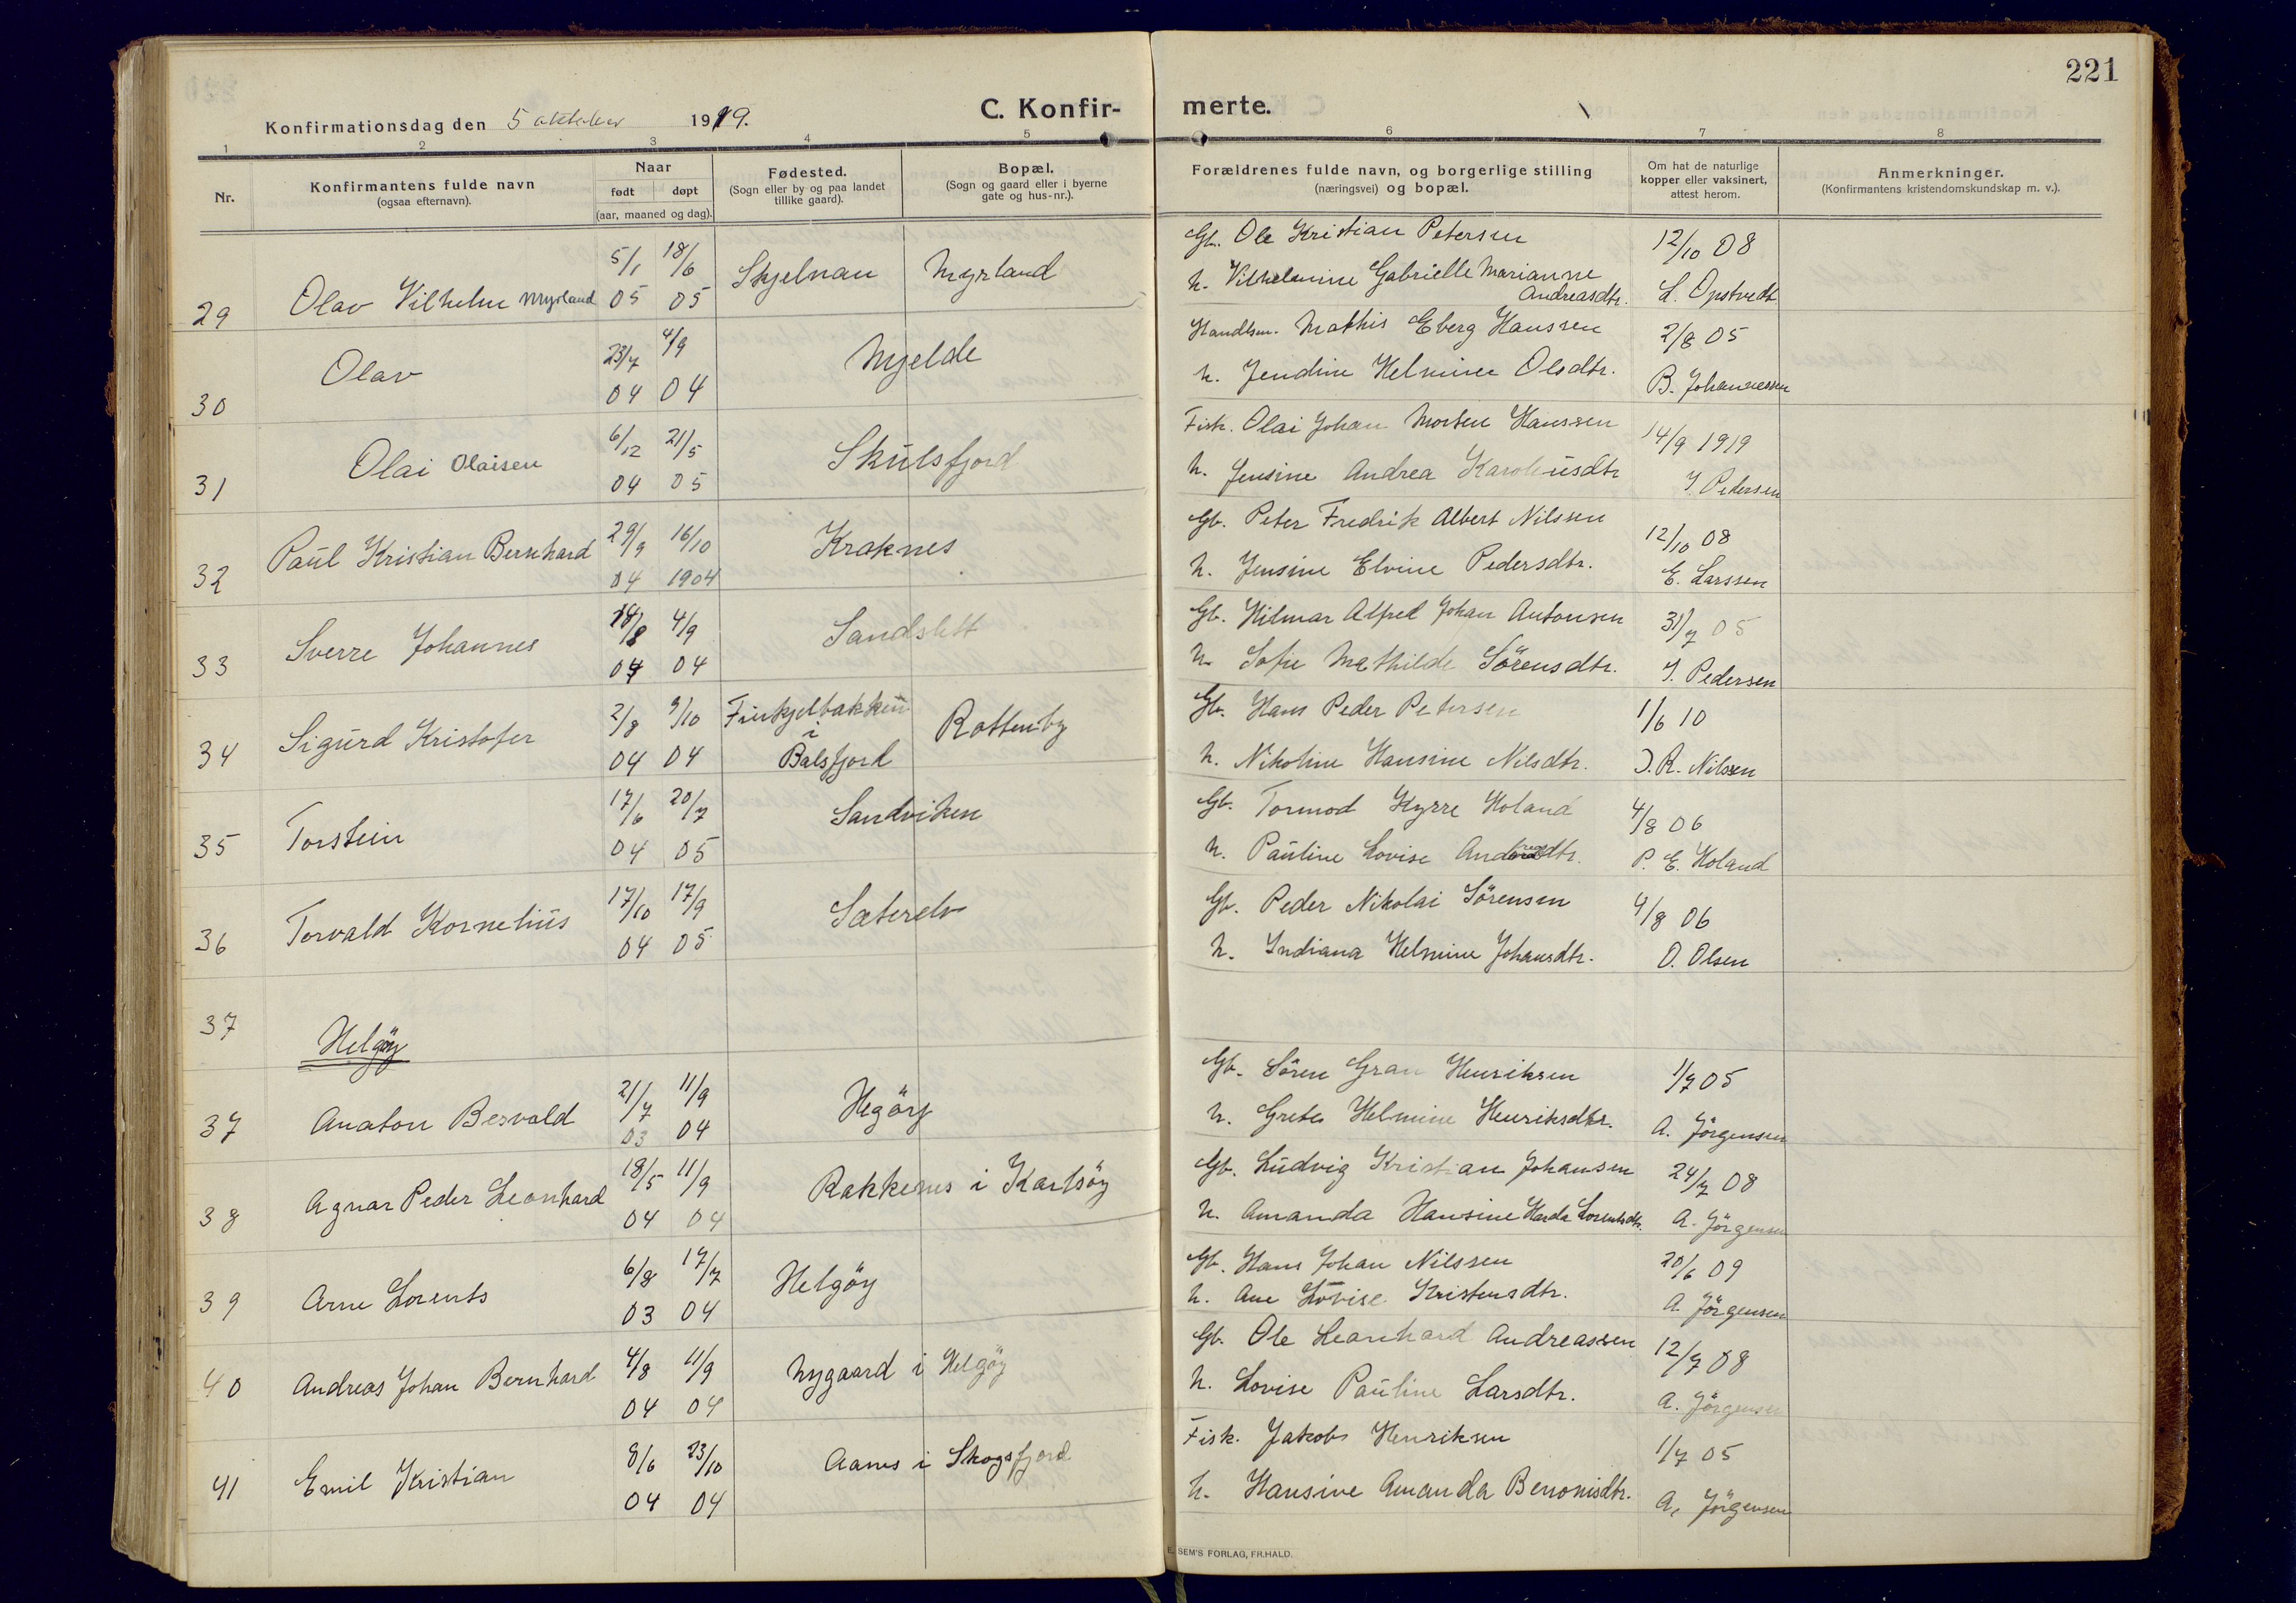 221
Konfirmationsdag den 5 oktober 1919.
C. Konfirmerte.
1 2 3 4 5 6 7 8
Nr.
Konfirmantens fulde navn
(ogsaa efternavn).
Naar
født døpt
(aar, maaned og dag).
Fødested.
(Sogn eller by og paa landet
tillike gaard).
Bopæl.
(Sogn og gaard eller i byerne
gate og hus-nr.).
Forældrenes fulde navn, og borgerlige stilling
(næringsvei) og bopæl.
Om hat de naturlige
kopper eller vaksinert,
attest herom.
Anmerkninger.
(Konfirmantens kristendomskundskap m. v.).
5/1 18/6 Skjelnan Myrland Gb. Ole Kristian Petersen 12/10 08
29 Olav Vilhelm Myrland 05 05 h. Vilhelmine Gabrielle Marianne
Andreasdtr. L. Opstvedt
23/7 4/9 Mjelde Handlsm. Mathis Eberg Hanssen 2/8 05
30 Olav 04 04 h. Jendine Helmine Olsdtr. B. Johannessen
6/12 21/5 Skulsfjord Fisk. Olai Johan Morten Hanssen 14/9 1919
31 Olai Olaisen 04 05 h. Jensine Andrea Karoliusdtr J. Pedersen
29/9 16/10 Kraknes Gb. Peter Fredrik Albert Nilssen 12/10 08
32 Paul Kristian Bernhard 04 1904 h. Jensine Elvine Pedersdtr. E. Larssen
18/8 4/9 Sandslett Gb. Hilmar Alfred Johan Antonsen 31/7 05
33 Sverre Johannes 04 04 h. Sofie Mathilde Sörensdtr. J. Pedersen
2/8 9/10 Finkjelbakken Rottenby Gb. Hans Peder Petersen 1/6 10
i
34 Sigurd Kristofer 04 04 Balsfjord h. Nikoline Hansine Nilsdtr. J. R. Nilsen
17/6 20/7 Sandviken Gb. Tormod Kyrre Holand 4/8 06
35 Torstein 04 05 h. Pauline Lovise Andreasdtr. P. E. Holand
17/10 17/9 Sæterelv Gb. Peder Nikolai Sörensen 4/8 06
36 Torvald Kornelius 04 05 h. Indiana Helmine Johansdtr. O. Olsen
37
Helgöy
21/7 11/9 Hegöy Gb. Sören Gran Henriksen 1/7 05
37 Anaton Besvald 03 04 h. Grete Helmine Henriksdtr. A. Jörgensen
18/5 11/9 Rakkenes i Karlsöy Gb. Ludvig Kristian Johansen 24/7 08
38 Agnar Peder Leonhard 04 04 h. Amanda Hansine Harda Lorentsdtr. A. Jörgensen
6/8 17/7 Helgöy Gb. Hans Johan Nilssen 20/6 09
39 Arne Lorents 03 04 h. Ane Lovise Kristensdtr. A. Jörgensen
4/8 11/9 Nygaard i Helgöy Gb. Ole Leonhard Andreassen 12/7 08
40 Andreas Johan Bernhard 04 04 h. Lovise Pauline Larsdtr. A. Jörgensen
8/6 23/10 Aanes i Skogsfjord Fisk. Jakob Henriksen 1/7 05
41 Emil Kristian 04 04 h. Hansine Amanda Benonisdtr. A. Jörgensen
E. SEM'S FORLAG, FR.HALD.